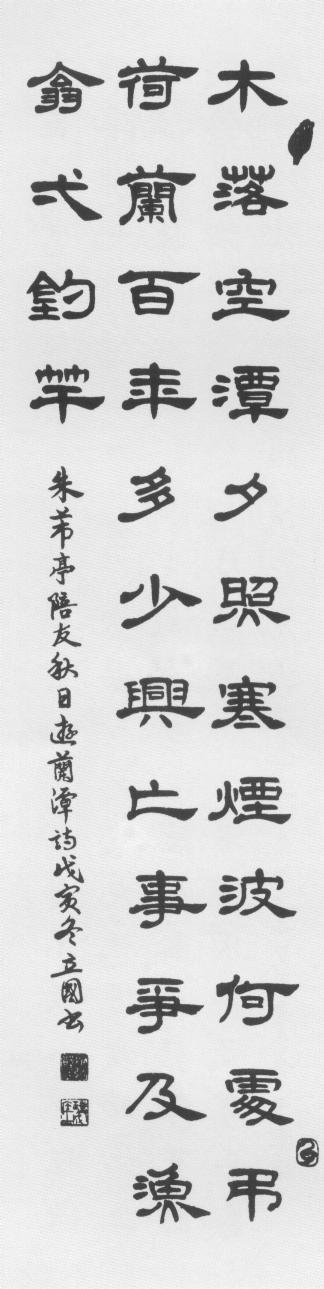 木落空潭夕照寒煙波何處弔
荷蘭百年多少興亡事爭及漁
翁弌釣竿
朱芾亭陪友秋日遊蘭潭詩戊寅冬立國書